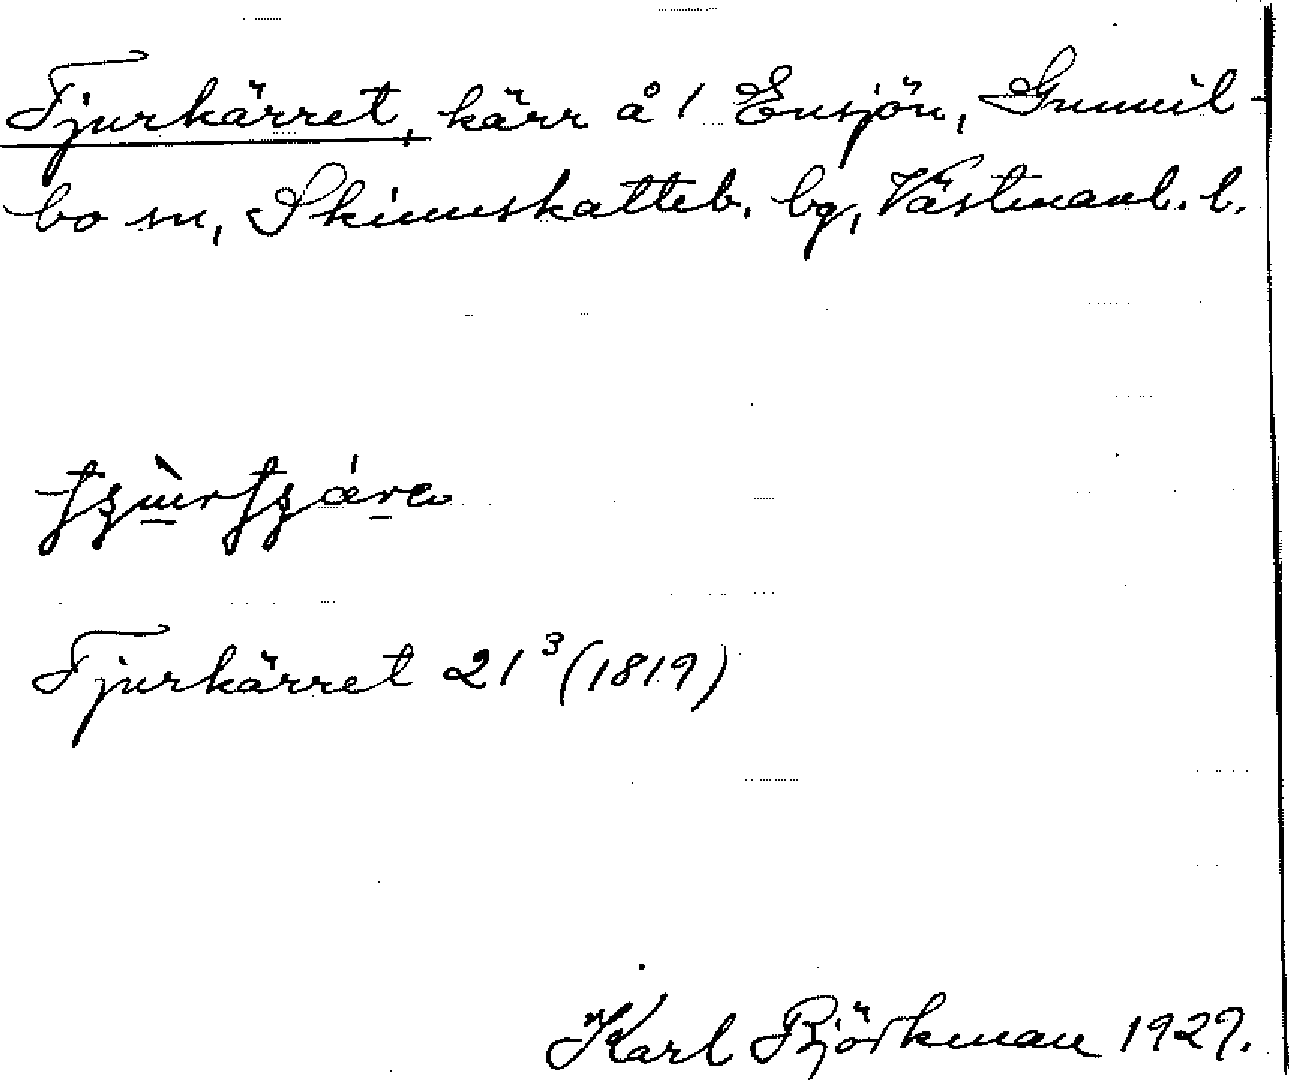 Tjurkärret, kärr å 1 Ensjön, Gunnil-
bo sn, Skinnskatteb. bg, Västmanl. l.
Tjurkärret 21³ (1819)
Karl Björkman 1927.